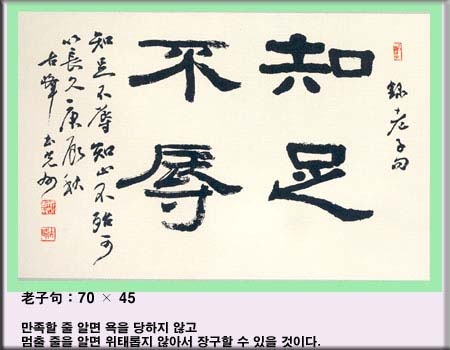 錄老子句
知足
不辱
知足不辱知止不殆可
以長久 庚辰秋
古峰
老子句 : 70 × 45
만족할 줄 알면 욕을 당하지 않고
멈출 줄을 알면 위태롭지 않아서 장구할 수 있을 것이다.